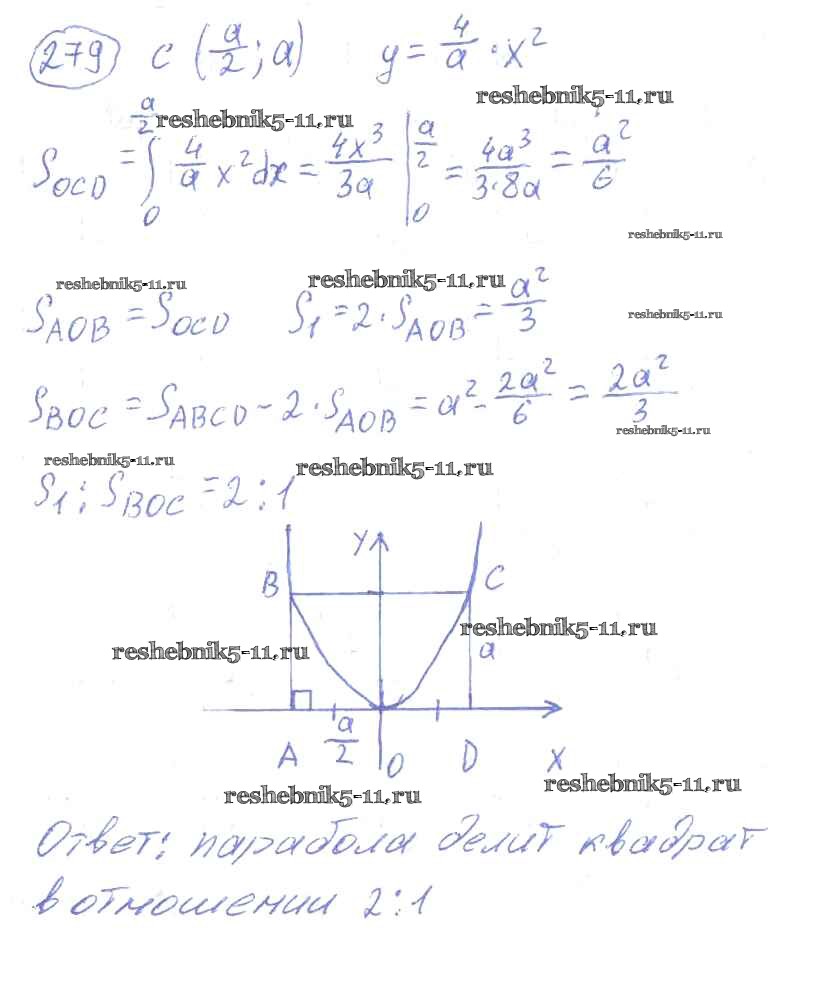 279 C (a/2; a) y = 4/a · x²
reshebnik5-11.ru
reshebnik5-11.ru
S_OCD = ∫₀^(a/2) 4/a x² dx = 4x³/3a |₀^(a/2) = 4a³/3·8a = a²/6
reshebnik5-11.ru
reshebnik5-11.ru reshebnik5-11.ru
S_AOB = S_OCD S₁ = 2 · S_AOB = a²/3
reshebnik5-11.ru
S_BOC = S_ABCD − 2 · S_AOB = a² − 2a²/6 = 2a²/3
reshebnik5-11.ru
reshebnik5-11.ru reshebnik5-11.ru
S₁ : S_BOC = 2 : 1
Y
B C
reshebnik5-11.ru
reshebnik5-11.ru a
a/2
A O D X
reshebnik5-11.ru reshebnik5-11.ru
Ответ: парабола делит квадрат
в отношении 2:1